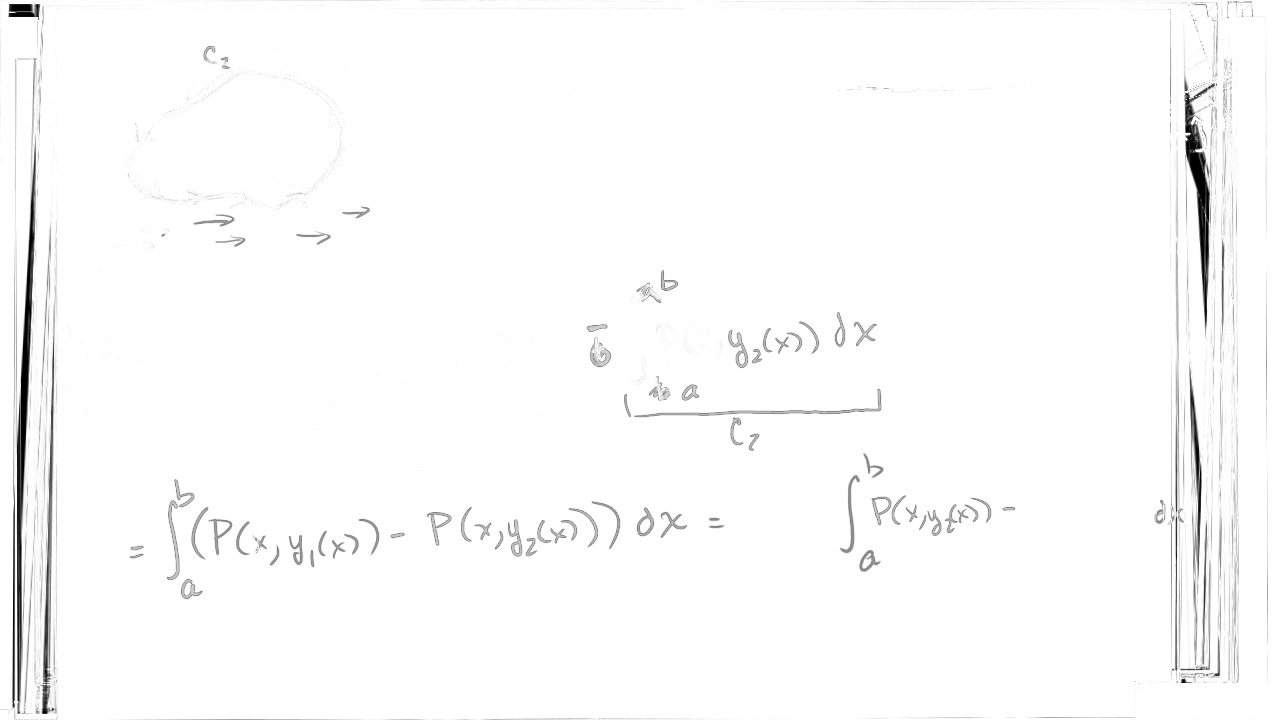 C₂
- ∫_a^b P(x, y₂(x)) dx
C₂
= ∫_a^b (P(x, y₁(x)) - P(x, y₂(x))) dx = ∫_a^b P(x, y₂(x)) - dx